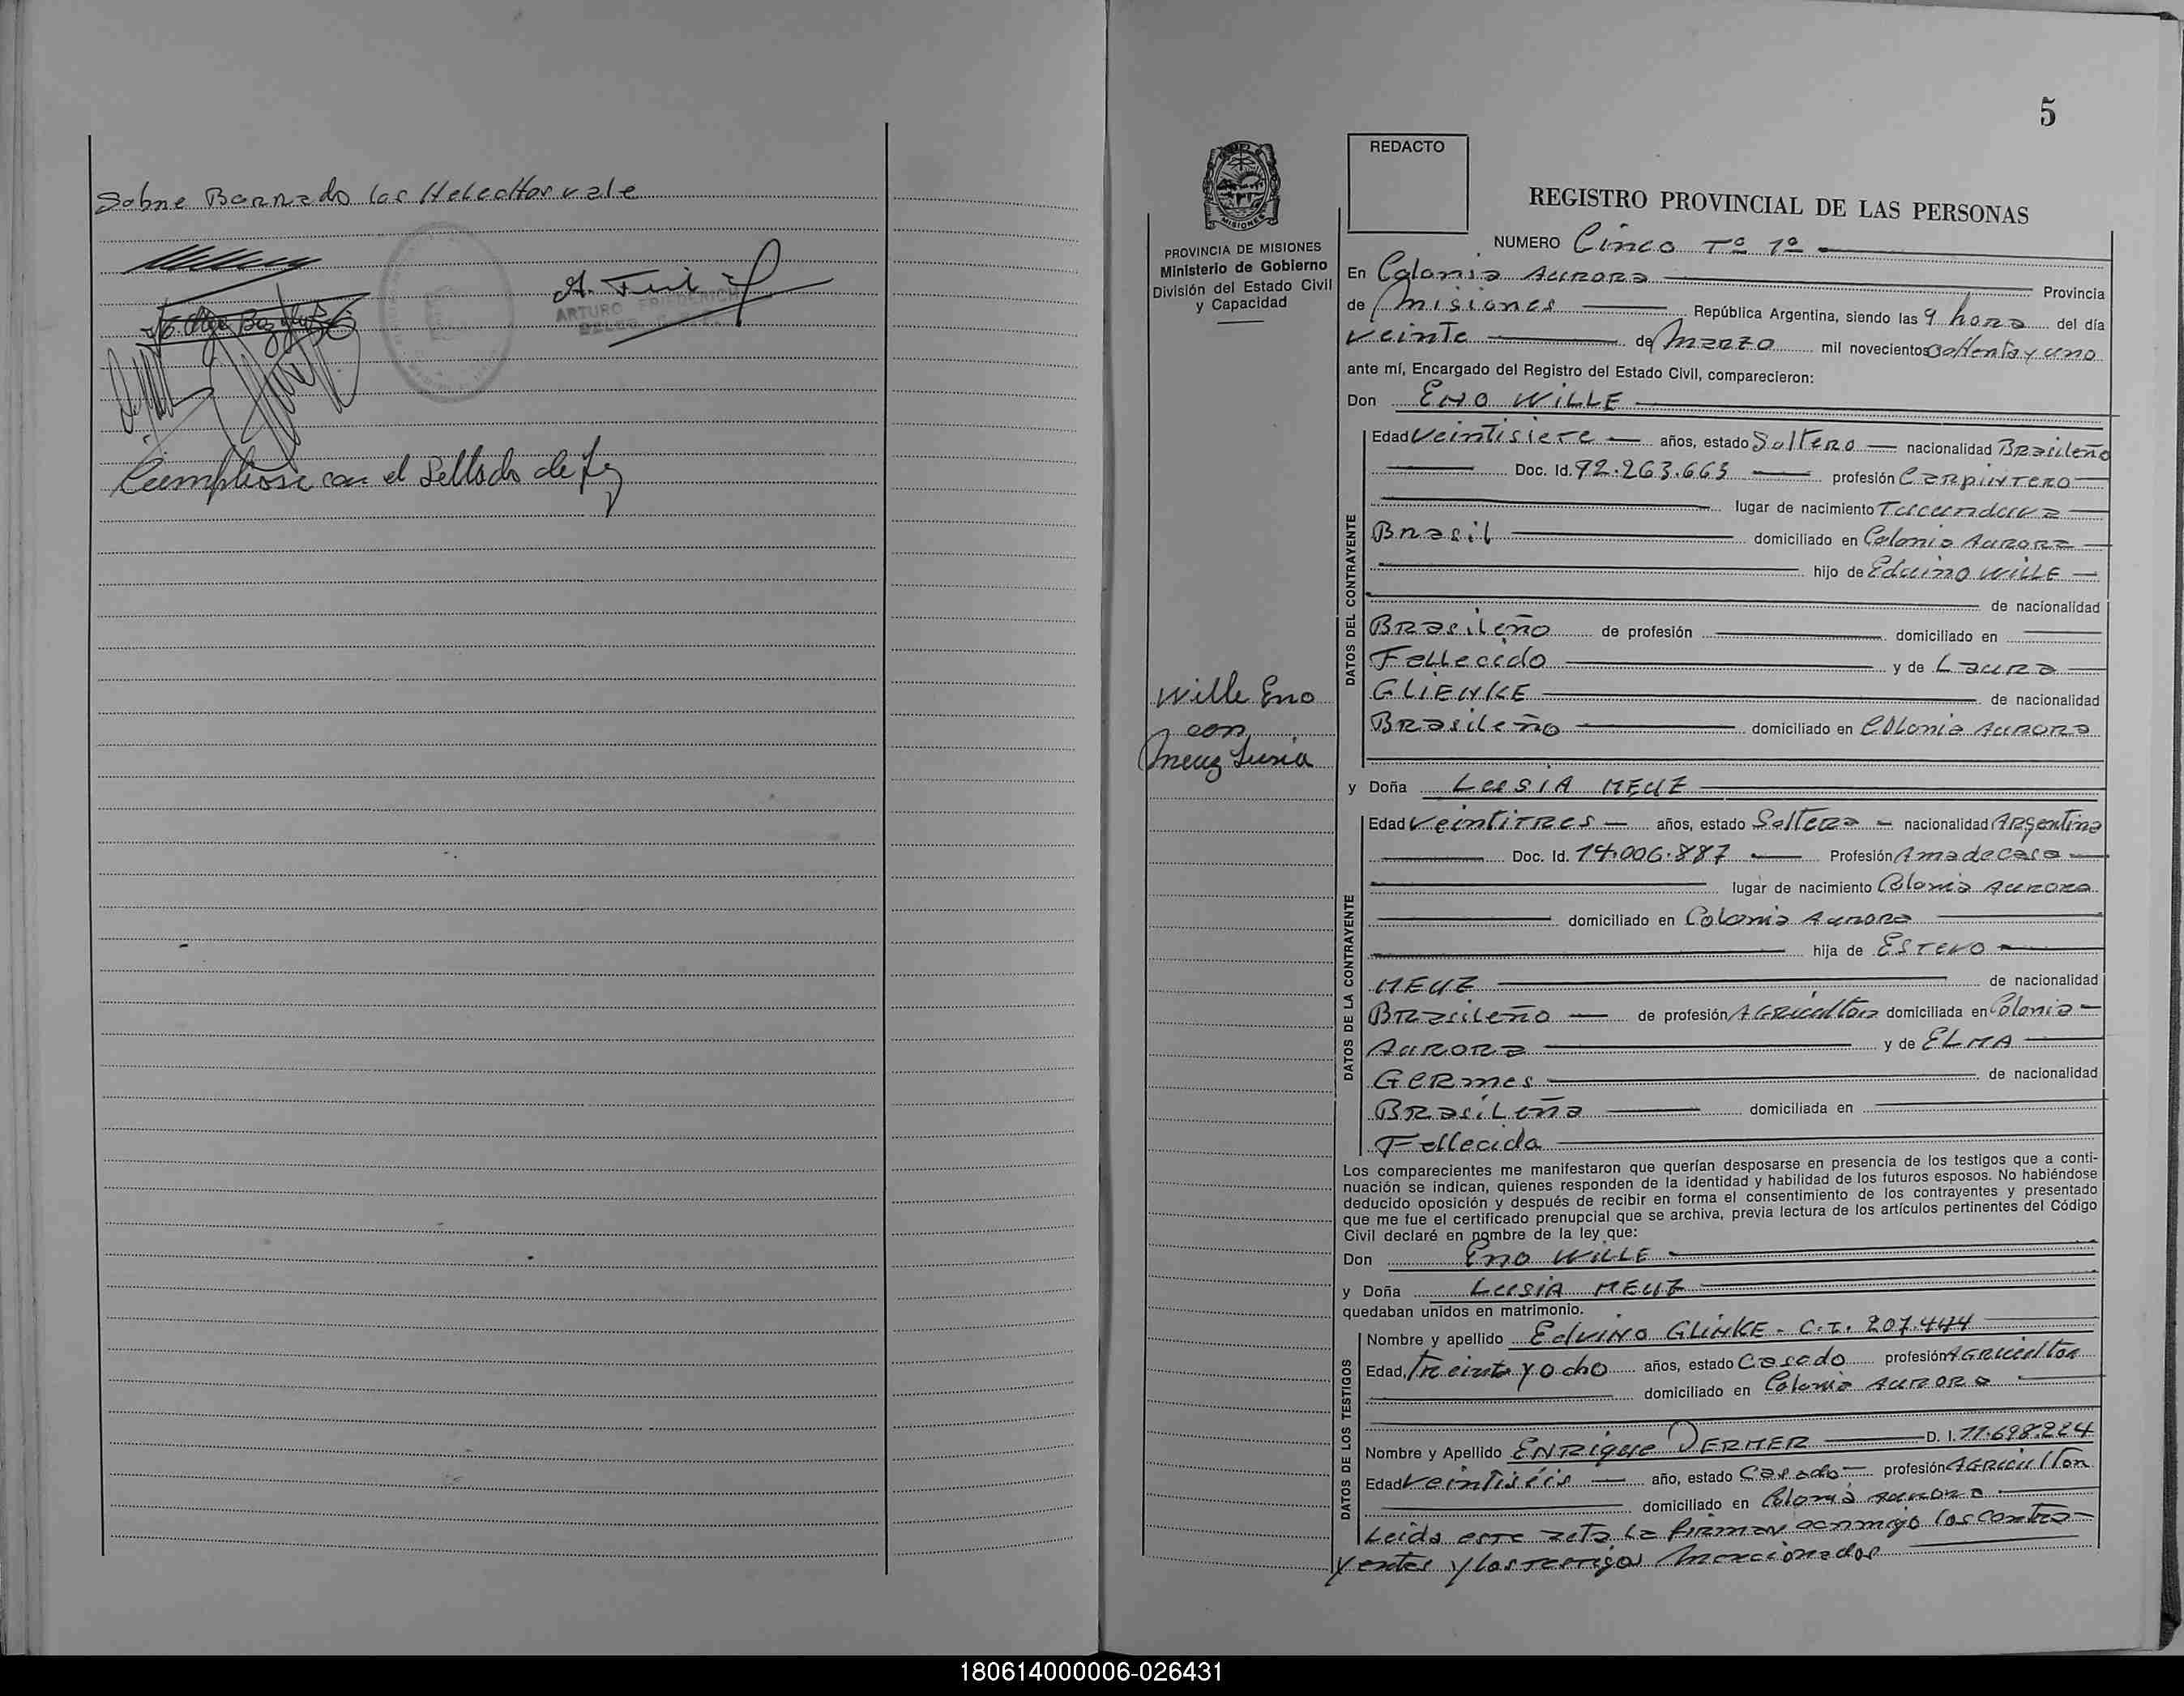 Sobre Borrado los Helechos vale
A. Frid
ARTURO FRIEDERICH
Cúmpliose con el Sellado de Ley
5
REDACTO
REGISTRO PROVINCIAL DE LAS PERSONAS
MISIONES
PROVINCIA DE MISIONES
Ministerio de Gobierno
División del Estado Civil
y Capacidad
NUMERO Cinco Tº 1º
En Colonia Aurora Provincia
de Misiones República Argentina, siendo las 9 hora del día
Veinte de Marzo mil novecientos ochenta y uno
ante mí, Encargado del Registro del Estado Civil, comparecieron:
Don ENO WILLE
DATOS DEL CONTRAYENTE
Edad Veintisiete años, estado Soltero nacionalidad Brasileño
Doc. Id. 92.263.663 profesión Carpintero
lugar de nacimiento Tucunduva
Brasil domiciliado en Colonia Aurora
hijo de Eduino WILLE
de nacionalidad
Brasileño de profesión domiciliado en
Fallecido y de Laura
GLIENKE de nacionalidad
Brasileño domiciliado en Colonia Aurora
Wille Eno
con
Meuz Lusia
y Doña LUSIA MEUZ
DATOS DE LA CONTRAYENTE
Edad Veintitres años, estado Soltera nacionalidad Argentina
Doc. Id. 14.006.887 Profesión Ama de casa
lugar de nacimiento Colonia Aurora
domiciliado en Colonia Aurora
hija de ESTEVO
MEUZ de nacionalidad
Brasileño de profesión Agricultor domiciliada en Colonia
Aurora y de ELMA
Germes de nacionalidad
Brasileña domiciliada en
Fallecida
Los comparecientes me manifestaron que querían desposarse en presencia de los testigos que a conti-
nuación se indican, quienes responden de la identidad y habilidad de los futuros esposos. No habiéndose
deducido oposición y después de recibir en forma el consentimiento de los contrayentes y presentado
que me fue el certificado prenupcial que se archiva, previa lectura de los artículos pertinentes del Código
Civil declaré en nombre de la ley que:
Don Eno WILLE
y Doña LUSIA MEUZ
quedaban unidos en matrimonio.
DATOS DE LOS TESTIGOS
Nombre y apellido Edvino GLINKE - C.I. 207.444
Edad, Treinta y ocho años, estado Casado profesión Agricultor
domiciliado en Colonia Aurora
Nombre y Apellido ENRique DERMER D. I. 11.698.224
Edad Veintiséis año, estado Casado profesión Agricultor
domiciliado en Colonia Aurora
Leida este acta la firman conmigo los contra-
yentes y los testigos Mencionados
180614000006-026431